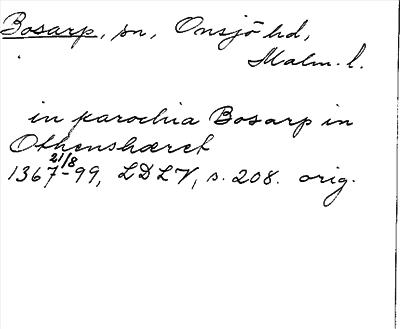 Bosarp, sn, Onsjö hd,
Malm. l.
in parochia Bosarp in
Othenshæret
21/8
1367-99, LDLV, s. 208. orig.